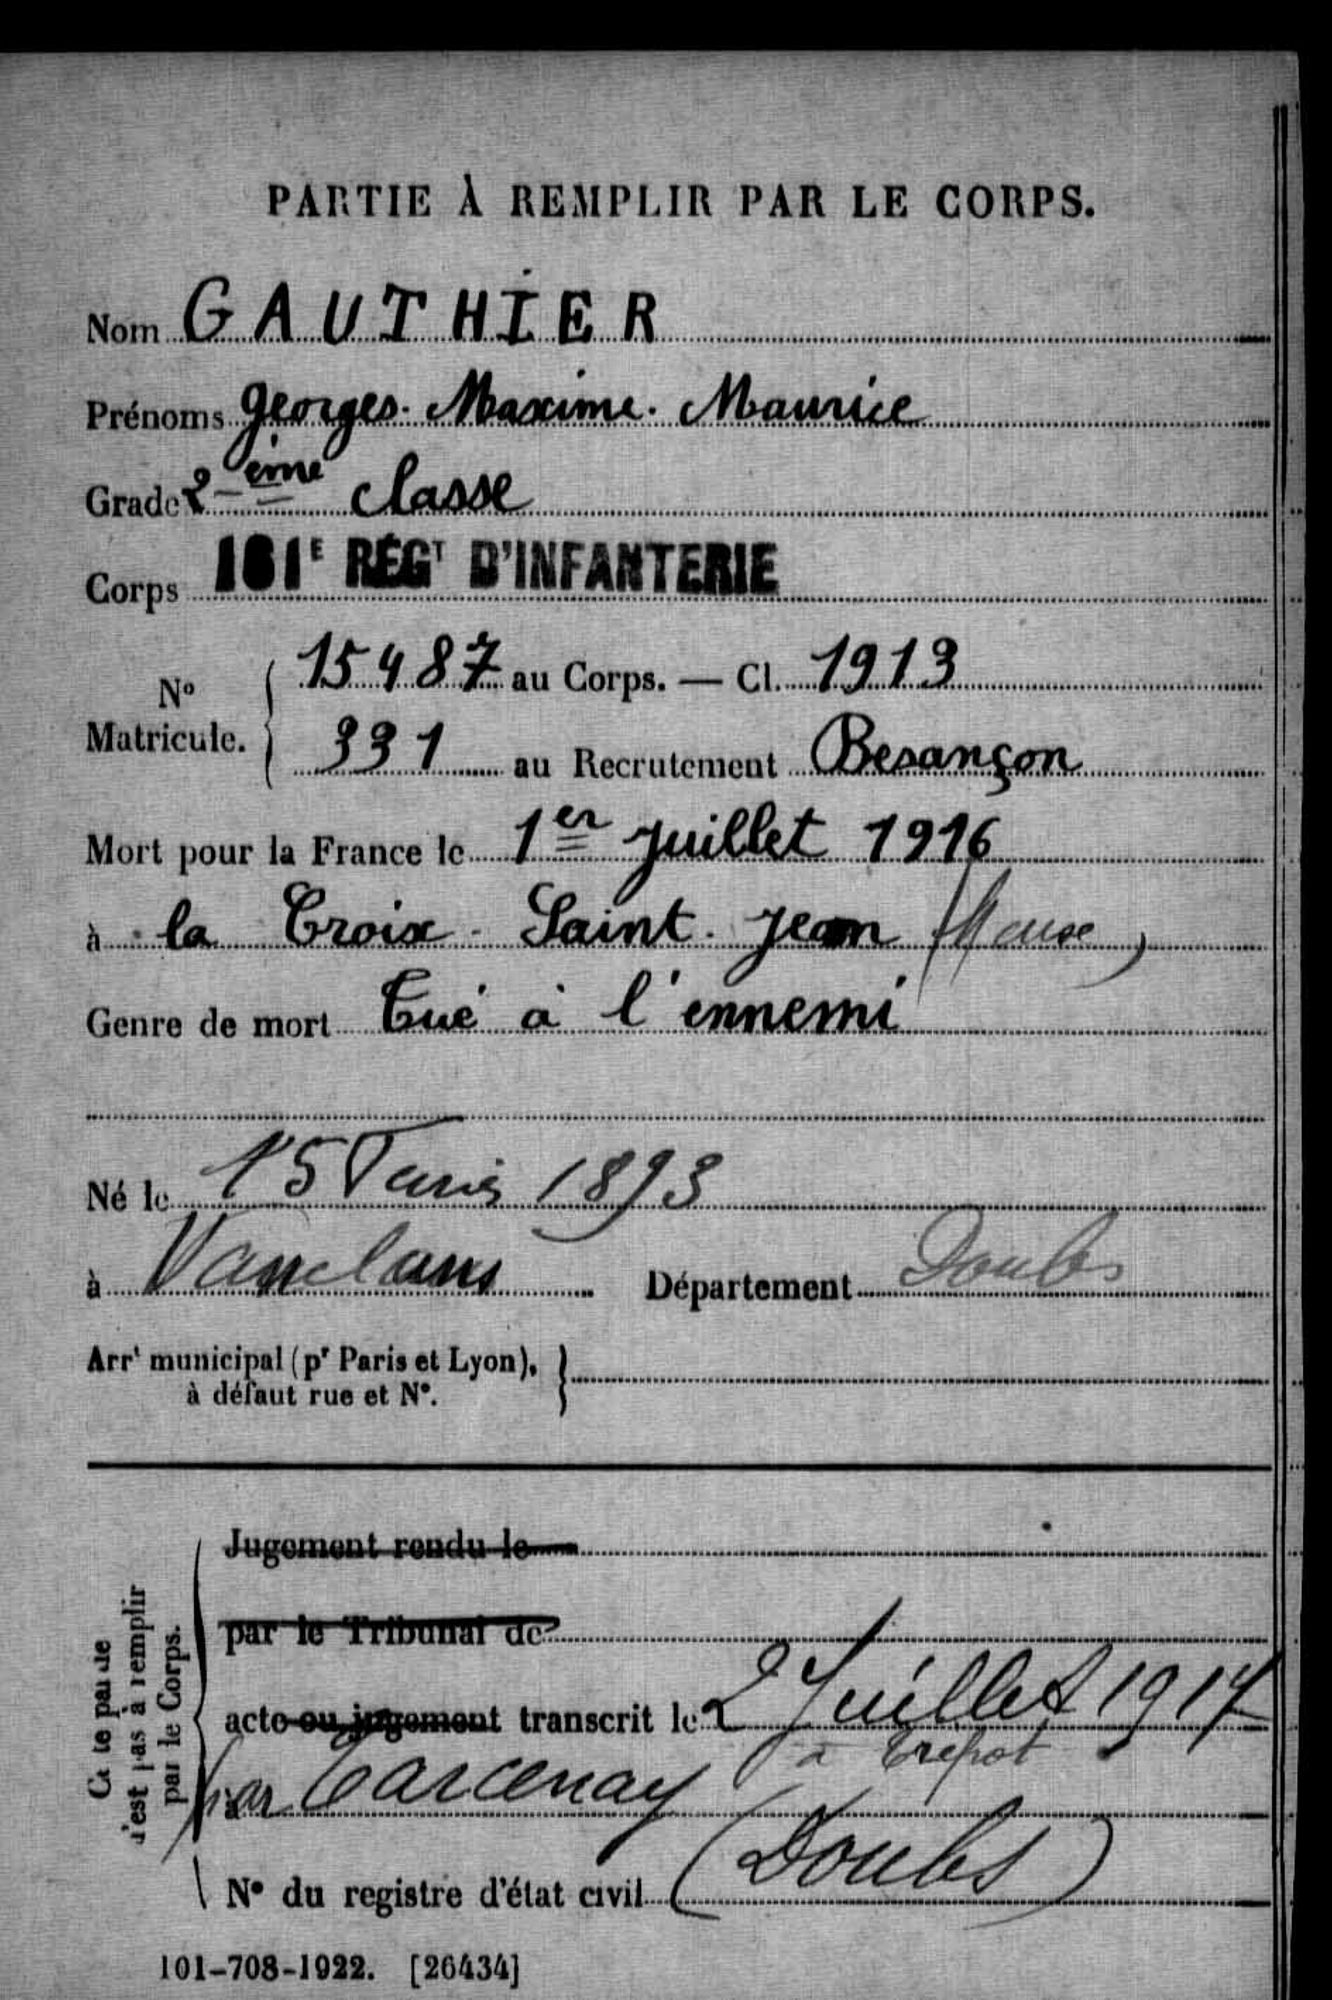 PARTIE À REMPLIR PAR LE CORPS.
Nom GAUTHIER
Prénoms Georges. Maxime. Maurice
Grade 2ème classe
Corps 161E RÉGT D'INFANTERIE
No Matricule. { 15487 au Corps. — Cl. 1913
331 au Recrutement Besançon
Mort pour la France le 1er Juillet 1916
à la Croix. Saint. Jean (Meuse)
Genre de mort Tué à l'ennemi
Né le 15 1893
à Vanclans Département Doubs
Arrt municipal (pr Paris et Lyon), }
à défaut rue et N°.
Jugement rendu le
par le Tribunal de
acte ou jugement transcrit le 2 Juillet 1917
à Trepot
par Tarcenay
N° du registre d'état civil (Doubs)
Cette partie
n'est pas à remplir
par le Corps.
101-708-1922. [26434]